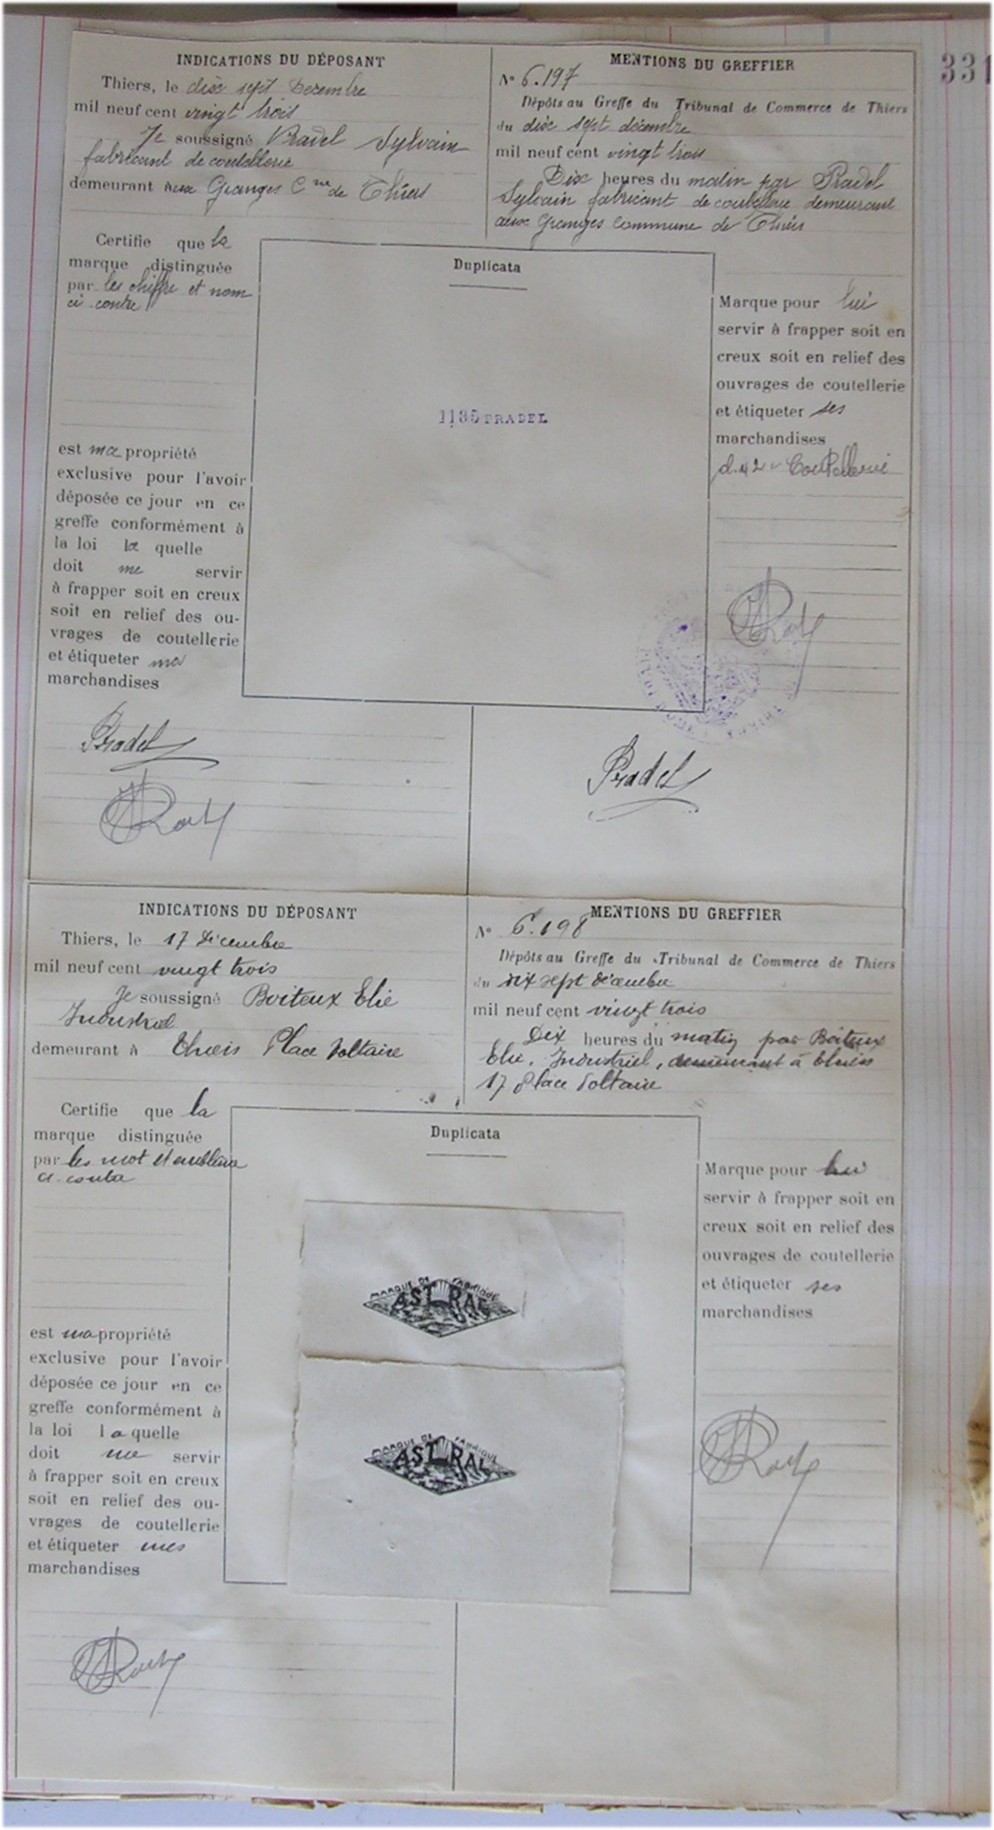 331
INDICATIONS DU DÉPOSANT
Thiers, le dix sept Decembre
mil neuf cent vingt trois
Je soussigné Pradel Sylvain
fabricant de coutellerie
demeurant aux Granges Cne de Thiers
Certifie que la
marque distinguée
par les chiffre et nom
ci-contre
est ma propriété
exclusive pour l'avoir
déposée ce jour en ce
greffe conformément à
la loi la quelle
doit me servir
à frapper soit en creux
soit en relief des ou-
vrages de coutellerie
et étiqueter
marchandises
Pradel
MENTIONS DU GREFFIER
N° 6.197
Dépôts au Greffe du Tribunal de Commerce de Thiers
du dix sept décembre
mil neuf cent vingt trois
Dix heures du matin par Pradel
Sylvain fabricant de coutellerie demeurant
aux Granges commune de Thiers
Duplicata
1135 PRADEL
Marque pour lui
servir à frapper soit en
creux soit en relief des
ouvrages de coutellerie
et étiqueter ses
marchandises
de Coutellerie
Pradel
INDICATIONS DU DÉPOSANT
Thiers, le 17 Décembre
mil neuf cent vingt trois
Je soussigné Boiteux Elie
Industriel
demeurant à Thiers Place Voltaire
Certifie que la
marque distinguée
par les mot et emblème
ci-contre
est ma propriété
exclusive pour l'avoir
déposée ce jour en ce
greffe conformément à
la loi la quelle
doit me servir
à frapper soit en creux
soit en relief des ou-
vrages de coutellerie
et étiqueter mes
marchandises
MENTIONS DU GREFFIER
N° 6.198
Dépôts au Greffe du Tribunal de Commerce de Thiers
du dix sept décembre
mil neuf cent vingt trois
Dix heures du matin par Boiteux
Elie, Industriel, demeurant à Thiers
17 place Voltaire
Duplicata
MARQUE DE FABRIQUE
ASTRAL
MARQUE DE FABRIQUE
ASTRAL
Marque pour lui
servir à frapper soit en
creux soit en relief des
ouvrages de coutellerie
et étiqueter ses
marchandises